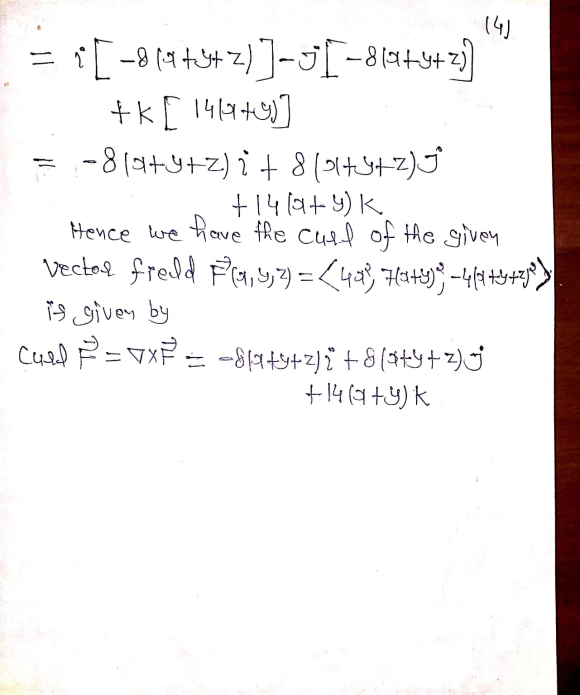 (4)
= i[-8(x+y+z)]-j[-8(x+y+z)]
+k[14(x+y)]
= -8(x+y+z)i + 8(x+y+z)j
+14(x+y)k
Hence we have the curl of the given
vector field F⃗(x,y,z) = <4x², 7(x+y)², -4(x+y+z)²>
is given by
Curl F⃗ = ∇×F⃗ = -8(x+y+z)i + 8(x+y+z)j
+14(x+y)k